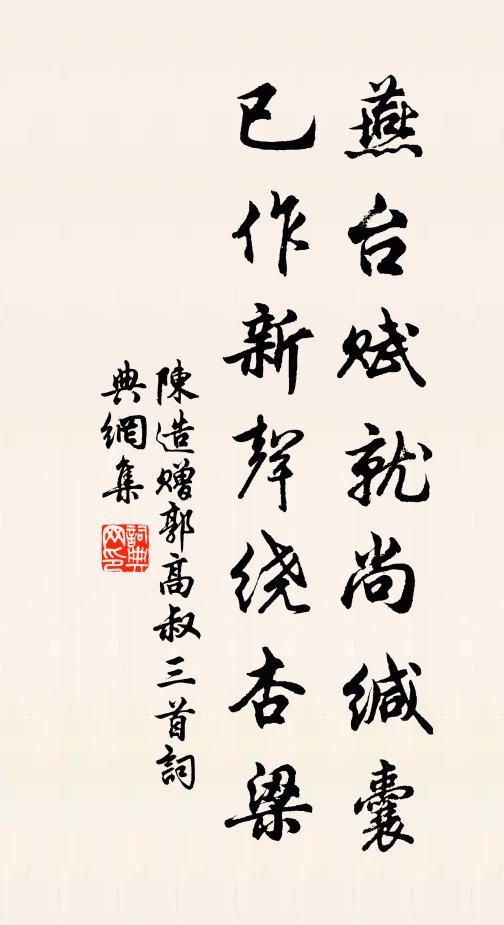 燕台赋就尚缄囊
已作新聲绕杏梁
陳造赠郭高叔三首詞
典網集
詞典网印